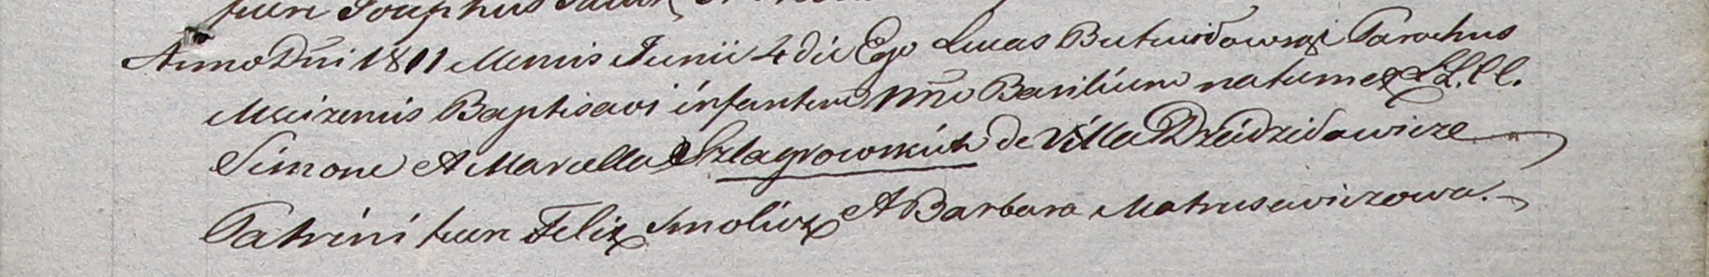 fuere Josephus
Anno Dni 1811 Mensis Junii 4 die Ego Lucas Butwidowski Parochus
Mscizensis Baptisavi infantem nne Basilium natum ex LL. CC.
Simone A Marcella Szlagrowskich de Villa Dziedzidowicze
Patrini fuere Felix Smolicz A Barbara Matrusewiczowa.